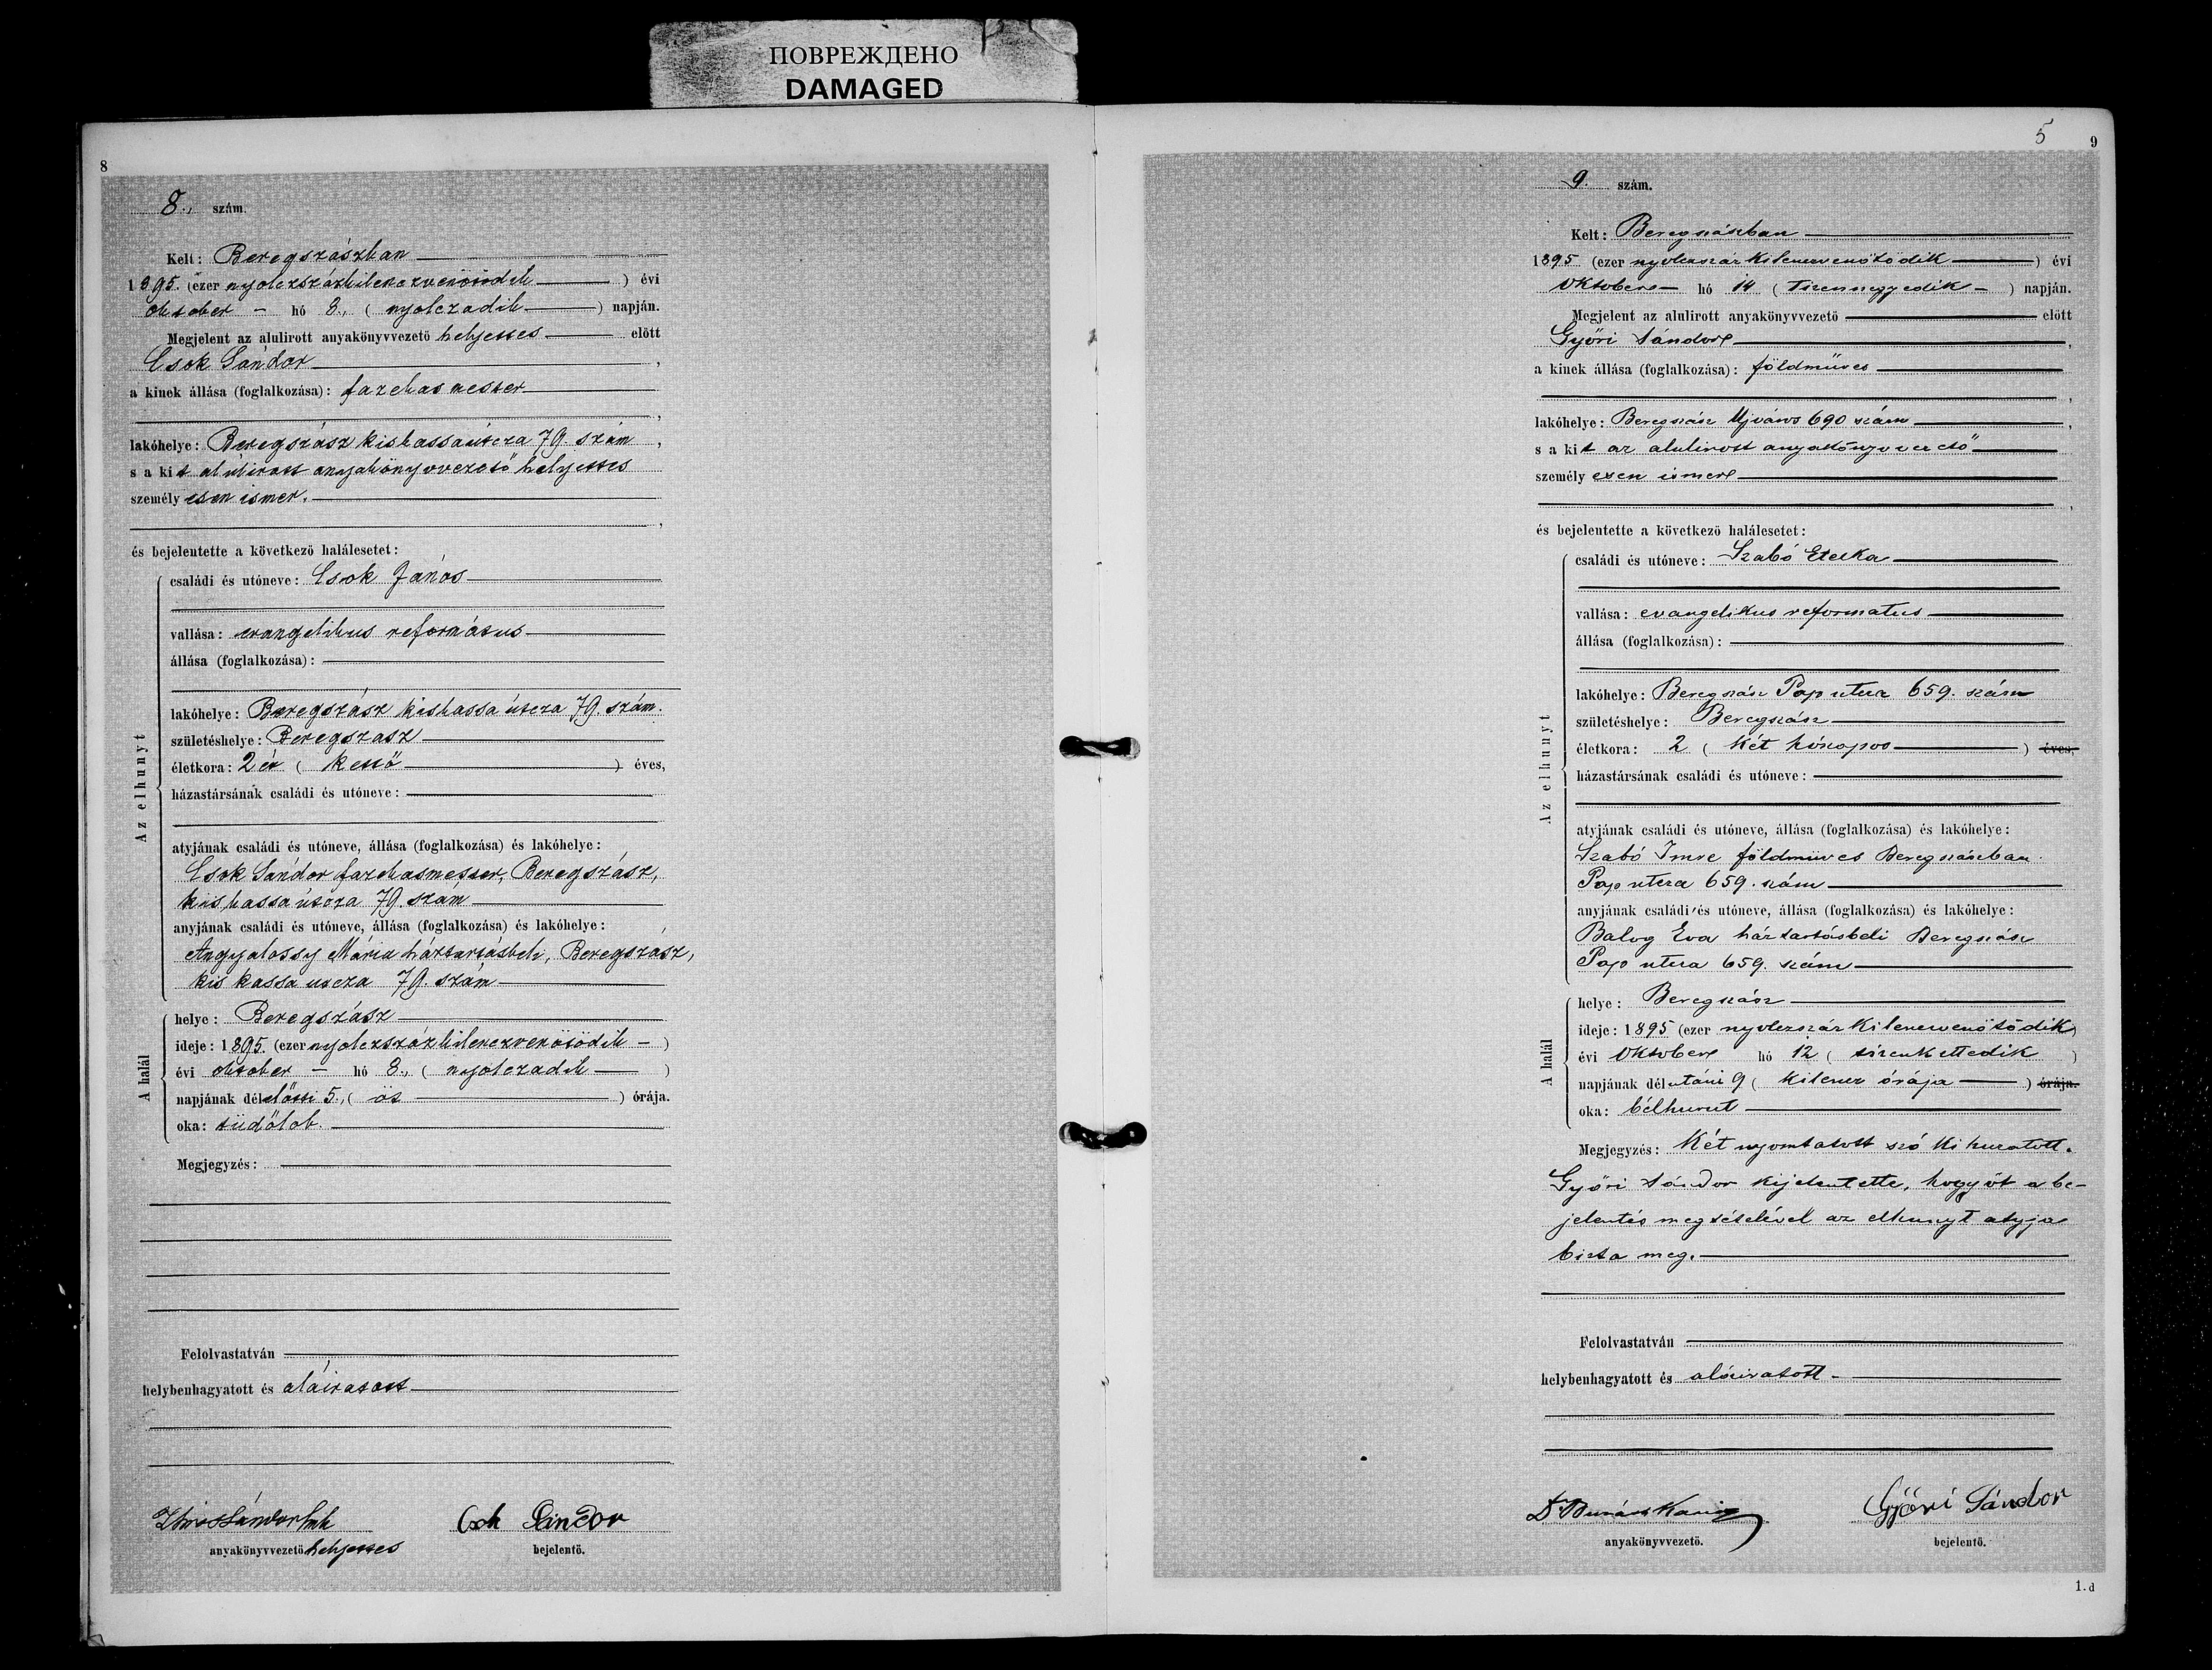 ПОВРЕЖДЕНО
DAMAGED
8
8., szám.
Kelt: Beregszászban
1895. (ezer nyolczszázkilenczvenötödik ) évi
október hó 8., ( nyolczadik ) napján.
Megjelent az alulirott anyakönyvvezető helyettes előtt
Csok Sándor ,
a kinek állása (foglalkozása): fazekas mester
,
lakóhelye: Beregszász kiskassa útcza 79. szám ,
s a kit alulirott anyakönyvvezető helyettes
személyesen ismer.
,
és bejelentette a következő halálesetet:
Az elhunyt
családi és utóneve: Csok János
vallása: evangelikus református
állása (foglalkozása):
lakóhelye: Beregszász kiskassa útcza 79. szám.
születéshelye: Beregszasz
életkora: 2 év ( kettő ) éves,
házastársának családi és utóneve:
atyjának családi és utóneve, állása (foglalkozása) és lakóhelye:
Csok Sándor fazekasmester, Beregszász,
kiskassa útcza 79. szám
anyjának családi és utóneve, állása (foglalkozása) és lakóhelye:
Angyalossy Mária háztartásbeli, Beregszász,
kis kassa utcza 79. szám
A halál
helye: Beregszász
ideje: 1895. (ezer nyolczszázkilenczvenötödik )
évi október hó 8., ( nyolczadik )
napjának délelőtti 5., ( öt ) órája.
oka: tüdőlob.
Megjegyzés:
Felolvastatván
helybenhagyatott és aláiratott
anyakönyvvezető helyettes
Csok Sándor
bejelentő.
5
9
9. szám.
Kelt: Beregszászban
1895 (ezer nyolczszázkilenczvenötödik ) évi
Október hó 14 ( tizennegyedik ) napján.
Megjelent az alulirott anyakönyvvezető előtt
Győri Sándor ,
a kinek állása (foglalkozása): földműves
,
lakóhelye: Beregszász Ujváros 690 szám ,
s a kit az alulirott anyakönyvvezető
személyesen ismer
,
és bejelentette a következő halálesetet:
Az elhunyt
családi és utóneve: Szabó Etelka
vallása: evangelikus reformatus
állása (foglalkozása):
lakóhelye: Beregszász Pap utcza 659. szám
születéshelye: Beregszász
életkora: 2 ( Két hónapos ) éves,
házastársának családi és utóneve:
atyjának családi és utóneve, állása (foglalkozása) és lakóhelye:
Szabó Imre földmüves Beregszászban.
Pap utcza 659. szám
anyjának családi és utóneve, állása (foglalkozása) és lakóhelye:
Balog Eva háztartásbeli Beregszász
Pap utcza 659. szám
A halál
helye: Beregszász
ideje: 1895 (ezer nyolczszázkilenczvenötödik)
évi Október hó 12 ( tizenkettedik )
napjának délutáni 9 ( kilencz órája ) órája.
oka: bélhurut
Megjegyzés: Két nyomtatott szó kihuzatott.
Győri Sándor kijelentette, hogy őt a be-
jelentés megtételével az elhunyt atyja
bizta meg.
Felolvastatván
helybenhagyatott és aláiratott
anyakönyvvezető.
Győri Sándor
bejelentő.
1.d